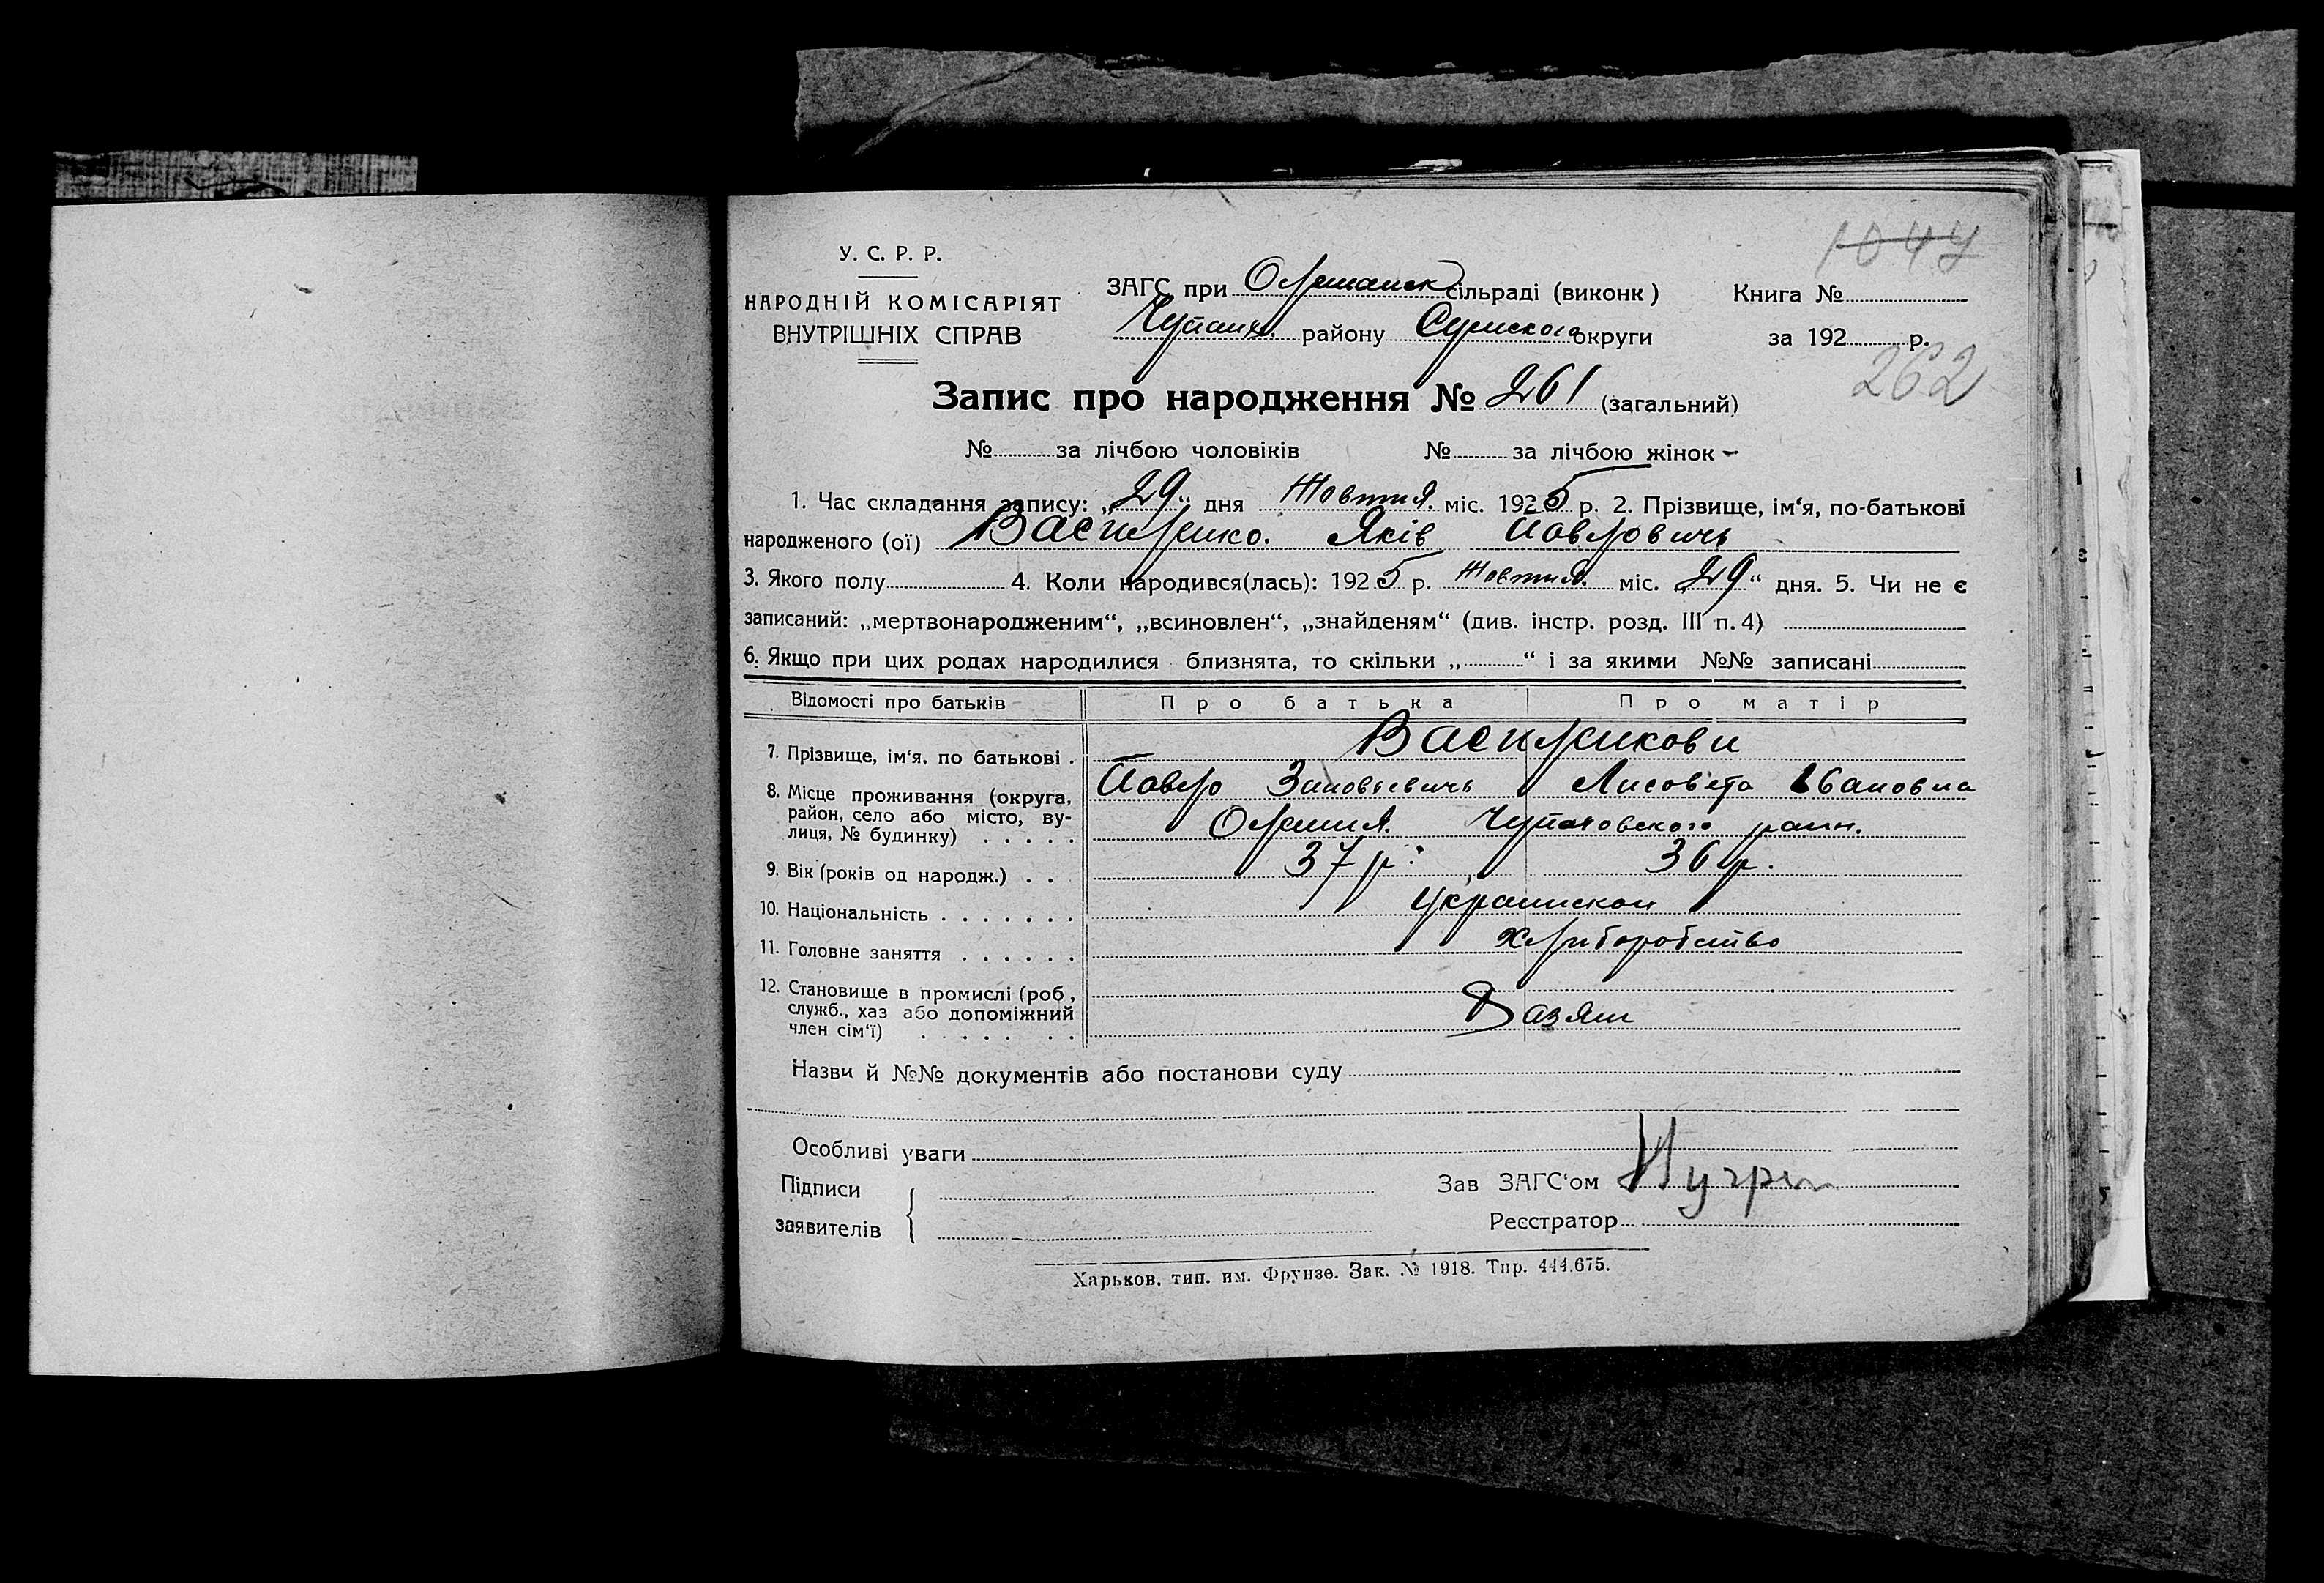 1044
У. С. Р. Р.
НАРОДНІЙ КОМІСАРІЯТ
ВНУТРІШНІХ СПРАВ
ЗАГС при Ольшанск сільраді (виконк)
району Сумского округи
Книга №
за 192 р.
262
Запис про народження № 261 (загальний)
№ за лічбою чоловіків № за лічбою жінок
1. Час складання запису: „29“ дня Жовтня міс. 1925 р. 2. Прізвище, ім‘я, по-батькові
народженого (ої) Василенко. Яків Павлович
3. Якого полу 4. Коли народився(лась): 1925 р. Жовтня міс. „29“ дня. 5. Чи не є
записаний: „мертвонародженим“, „всиновлен“, „знайденям“ (див. інстр. розд. III п. 4)
6. Якщо при цих родах народилися близнята, то скільки „ “ і за якими №№ записані
Відомості про батьків Про батька Про матір
7. Прізвище, ім‘я, по батькові .
8. Місце проживання (округа,
район, село або місто, ву-
лиця, № будинку) . . . . .
9. Вік (років од народж.) . .
10. Національність . . . . . . .
11. Головне заняття . . . . . .
12. Становище в промислі (роб,
служб., хаз або допоміжний
член сім‘ї) . . . . . . .
Василикови
Павло Зиновьевичь Лисовета Ивановна
Ольшия. Чупаховского раин.
37 р. 36 р.
Украинскои
хлиборобство
Назви й №№ документів або постанови суду
Особливі уваги
Підписи
заявителів
Зав ЗАГС‘ом
Реєстратор
Харьков, тип. им. Фрунзе. Зак. № 1918. Тир. 444.675.